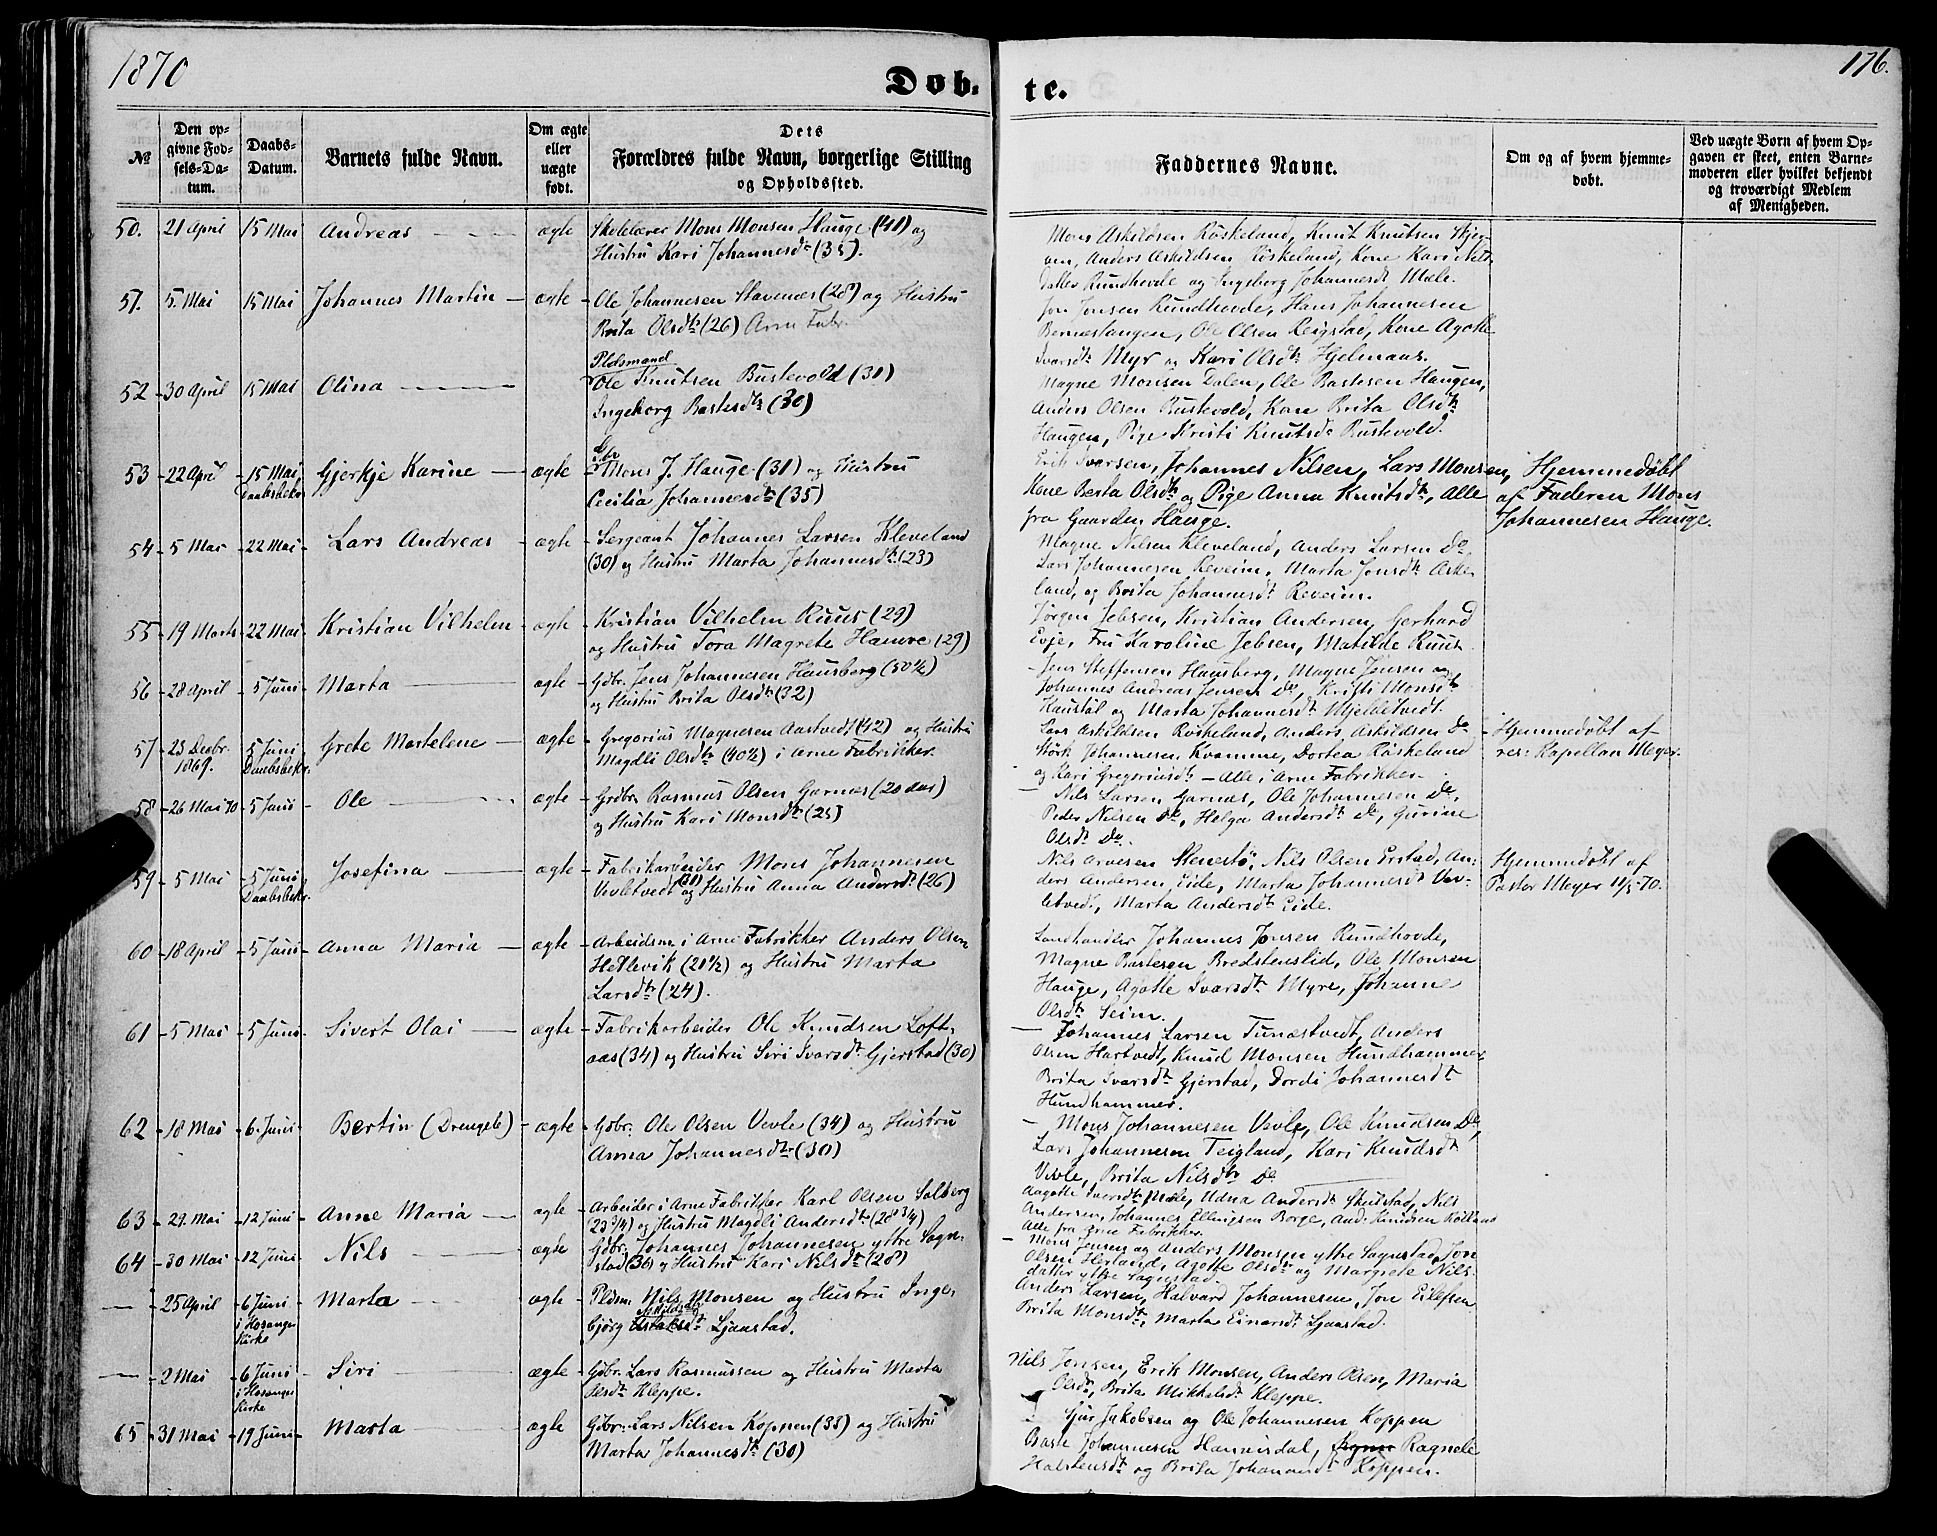 1870
176.
Döb-
te.
№
Den op-
givne Fød-
sels-Da-
tum.
Daabs-
Datum.
Barnets fulde Navn.
Om ægte
eller
uægte
født.
Dets
Forældres fulde Navn, borgerlige Stilling
og Opholdssted.
Faddernes Navne.
Om og af hvem hjemme-
døbt.
Ved uægte Børn af hvem Op-
gaven er skeet, enten Barne-
moderen eller hvilket bekjendt
og troværdigt Medlem
af Menigheden.
50. 21 April 15 Mai Andreas ægte Skolelærer Mons Monsen Hauge (41) og
Hustru Kari Johannesdtr (35).
Mons Askildsen Röskeland, Knut Knutsen
Anders Askildsen Röskeland, Kone Kari Nils
datter Rundhovde og Ingeborg Johannesdt Mæle.
51. 5. Mai 15 Mai Johannes Martin ægte Ole Johannesen Stavenæs (28) og Hustru
Brita Olsdtr (26) Arne Fabr.
Jon Jonsen Rundhovde, Hans Johannesen
Ole Olsen Reigstad, Kone Agatte
Ivarsdt. Myr og Kari Olsdtr Hjelmaas.
52 30 April 15 Mai Olina Pladsmand
Ole Knutsen Bustevold (31)
Ingeborg Bastesdtr (30)
Magne Monsen Dalen, Ole Bastesen Haugen,
Anders Olsen Bustevold, Kone Brita Olsdtr
Haugen, Pige Kristi Knutsdr Bustevold.
53 22 April 15 Mai Gjerkje Karine ægte Gbr
Daabsbekr Mons J. Hauge (31) og Hustru
Cecilia Johannesdtr (35)
Erik Ivarsen, Johannes Nilsen, Lars Monsen,
Kone Berta Olsdtr og Pige Anna Knutsdtr, Alle
fra Gaarden Hauge.
Hjemmedöbt
af Faderen Mons
Johannesen Hauge.
54 5 Mai 22 Mai Lars Andreas ægte Sergeant Johannes Larsen Kleveland
(30) og Hustru Marta Johannesdtr (23)
Magne Nilsen Kleveland, Anders Larsen Do
Lars Johannesen Reveim, Marta Jonsdtr Aske
land, og Brita Johannesdt. Reveim.
55 19 Marts 22 Mai Kristian Vilhelm ægte Kristian Vilhelm Ruus (29)
og Hustru Tora Magrete Hamre (29)
Jörgen Jebsen, Kristian Andersen, Gerhard
Evje, Fru Karoline Jebsen, Matilde Ruus
56 28 April 5 Juni Marta ægte Gdbr. Jens Johannesen Hausberg (50½)
og Hustru Brita Olsdtr (32)
Jens Steffensen Hausberg, Magne Jensen og
Johannes Andreas Jensen Do, Kristi Monsdtr
og Marta Johannesdt. Mjeldetvedt.
57 23 Decbr. 5 Juni Grete Martelene ægte Gregorius Magnesen Aastvedt (42) og Hustru
1869. Daabsbekr. Magdli Olsdtr (40½) i Arne Fabrikker.
Lars Askildsen Röskeland, Anders Askildsen Do
Störk Johannesen Kvamme, Dortea Röskeland
og Kari Gregoriusdt. – Alle i Arne Fabrikker.
Hjemmedöbt af
res: Kapellan Meyer.
58 26 Mai 70 5 Juni Ole ægte Grdbr. Rasmus Olsen Garnæs (20 aar)
og Hustru Kari Monsdtr (25)
Nils Larsen Garnæs, Ole Johannesen Do,
Peder Nilsen Do, Helga Andersdt Do, Guriane
Olsdt Do.
59 5 Mai 5 Juni Josefina ægte Fabrikarbeider Mons Johannesen
Daabsbekr. Vevletvedt (31) og Hustru Anna Andersdt. (26)
Nils Arvesen Stenestö, Nils Olsen Erstad, An-
ders Andersen Eide, Marta Johannesdt Vev-
letvedt, Marta Andersdt Eide.
Hjemmedöbt af
Pastor Meyer 11/5 70.
60 18 April 5 Juni Anna Maria ægte Arbeidsm. i Arne Fabrikker Anders Olsen
Hetlevik (21½) og Hustru Marta
Larsdtr (24).
Landhandler Johannes Jonsen Rundhovde,
Magne Bastesen Bredstenslid, Ole Monsen
Hauge, Agatte Ivarsdt. Myre, Johanne
Olsdt. Seim.
61 5 Mai 5 Juni Sivert Olai ægte Fabrikarbeider Ole Knudsen Loft-
aas (34) og Hustru Siri Ivarsdt. Gjerstad (30)
Johannes Larsen Tunæstvedt, Anders
Olsen Hartvedt, Knud Monsen Hundhammer
Brita Ivarsdt. Gjerstad, Dordi Johannesdt
Hundhammer.
62 18 Mai 6. Juni Bertin (Drengeb) ægte Gdbr. Ole Olsen Vevle (34) og Hustru
Anna Johannesdtr (30)
Mons Johannesen Vevle, Ole Knudsen Do,
Lars Johannesen Teigland, Kari Knudsdt
Vevle, Brita Nilsdtr Do
63 29. Mai 12 Juni Anne Maria ægte Arbeider i Arne Fabrikker Karl Olsen Solberg
(23 3/4) og Hustru Magdli Andersdtr (28 3/4)
Aagotte Ivarsdtr Mæle, Udna Andersdt Skulstad, Nils
Andersen, Johannes Ellingsen Borge, And: Knudsen Rölland
Alle fra Arne Fabrikker.
64 30 Mai 12 Juni Nils ægte Gdbr. Johannes Johannesen yttre Sagn-
stad (36) og Hustru Kari Nilsdtr (28)
Mons Jensen og Anders Monsen yttre Sagnstad, Jon
Olsen Herland, Agotte Olsdtr og Margrete Nils-
datter yttre Sagnstad.
25 April 6 Juni Marta ægte Pldsm. Nils Monsen og Hustru Inge-
i Hosanger
Kirke björg Ljaastad.
Anders Larsen, Halvard Johannesen, Jon Eilefsen
Brita Monsdt., Marta Einarsdt. Ljaastad.
2 Mai 6 Juni Siri ægte Gdbr. Lars Rasmussen og Hustru Marta
i Hosanger
Kirke Olsdt. Kleppe.
Nils Jonsen, Erik Monsen, Anders Olsen, Maria
Olsdt., Brita Mikkelsdt. Kleppe.
65 31 Mai 19 Juni Marta ægte Gdbr. Lars Nilsen Koppen (35) og Hustru
Marta Johannesdt. (30)
Sjur Jakobsen og Ole Johannesen Koppen
Baste Johannesen Hannisdal, Ragnele
Halstensdt. og Brita Johannesdt. Koppen.